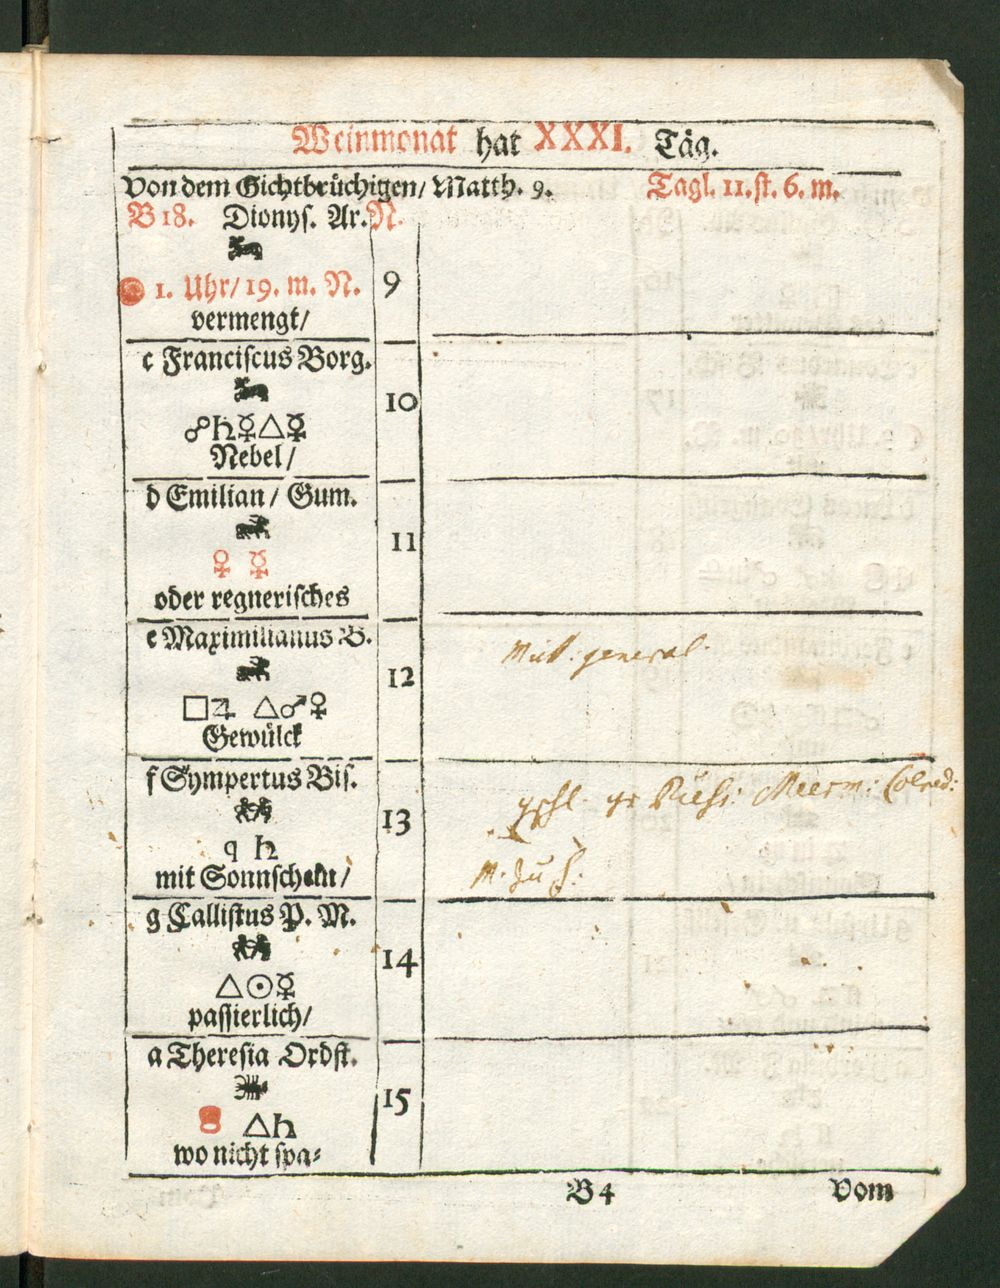 Weinmonat hat XXXI. Täg.
Von dem Gichtbrüchigen/ Matth. 9. Tagl. 11. st. 6. m.
B 18. Dionys. Ar. N.
1. Uhr/ 19. m. N. 9
vermengt/
c Franciscus Borg.
10
☍♄☿△☿
Nebel/
d Emilian/ Gum.
11
♀ ☿
oder regnerisches
e Maximilianus B.
Mitt: general.
12
□♃ △♂♀
Gewülck
f Sympertus Bis.
13
q ♄
mit Sonnschein/
M. zu
g Callistus P. M.
14
△☉☿
passierlich/
a Theresia Ordst.
15
△♄
wo nicht spa⸗
B 4 Vom